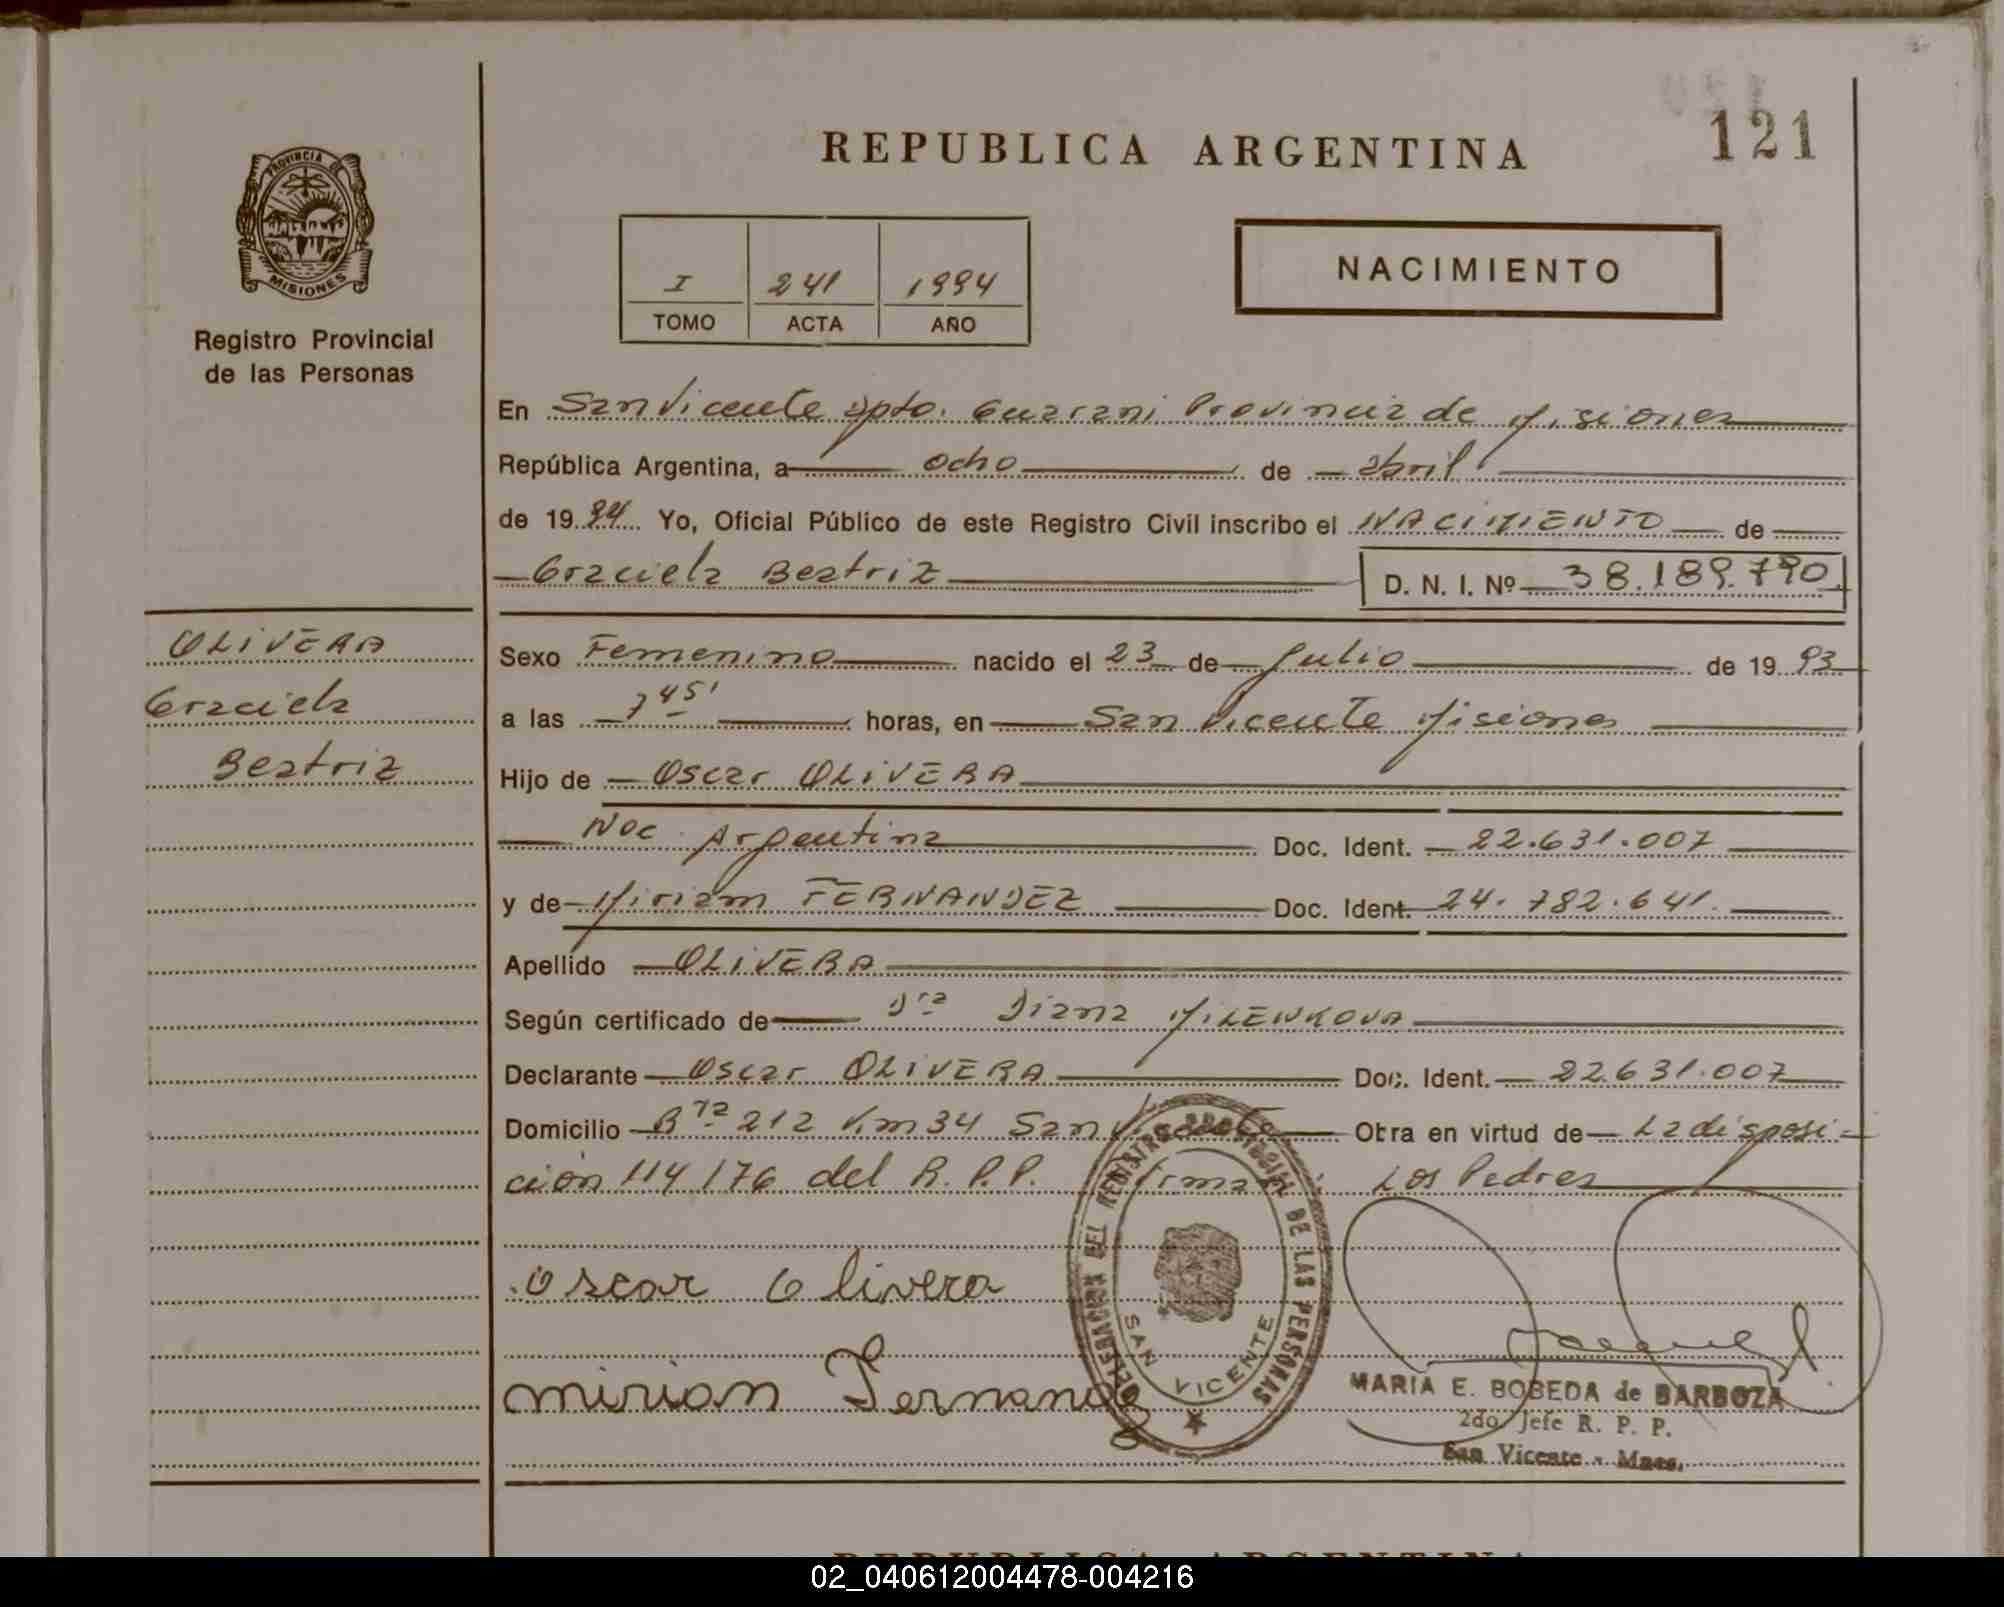 REPUBLICA ARGENTINA
121
PROVINCIA DE
MISIONES
Registro Provincial
de las Personas
I 241 1994
TOMO ACTA AÑO
NACIMIENTO
En San Vicente Dpto. Guarani Provincia de Misiones
República Argentina, a ocho de abril
de 1994 Yo, Oficial Público de este Registro Civil inscribo el NACIMIENTO de
Graciela Beatriz D. N. I. Nº 38.189.790
OLIVERA
Graciela
Beatriz
Sexo Femenino nacido el 23 de Julio de 1993
a las 7 45' horas, en San Vicente Misiones
Hijo de Oscar OLIVERA
Nac. Argentina Doc. Ident. 22.631.007
y de Miriam FERNANDEZ Doc. Ident. 24.782.641.
Apellido OLIVERA
Según certificado de Dra Diana MILENKOVA
Declarante Oscar OLIVERA Doc. Ident. 22.631.007
Domicilio Rta 212 Km 34 San Vicente Obra en virtud de La disposi-
ción 114/76 del R.P.P. Firman: Los Padres
Oscar Olivera
mirian Fernandez
DELEGACION DEL REGISTRO PROVINCIAL DE LAS PERSONAS
SAN VICENTE
MARIA E. BOBEDA de BARBOZA
2do Jefe R. P. P.
San Vicente - Mnes.
REPUBLICA ARGENTINA
02_040612004478-004216